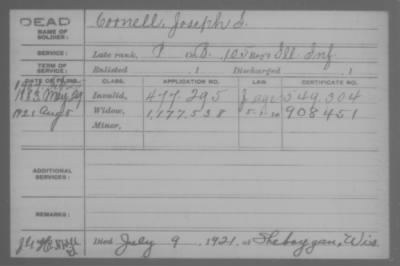 DEAD
NAME OF SOLDIER: Cornell, Joseph S.
SERVICE: Late rank, P Co. B. 105 Reg't Ill Inf
TERM OF SERVICE: Enlisted , 1 Discharged , 1
DATE OF FILING. CLASS. APPLICATION NO. LAW. CERTIFICATE NO.
1883 May 29 Invalid, 477.295 349.304
1921 Aug 5 Widow, 1,177,538 5-1-20 908451
Minor,
ADDITIONAL SERVICES:
REMARKS:
Died July 9, 1921, at Sheboygan, Wis